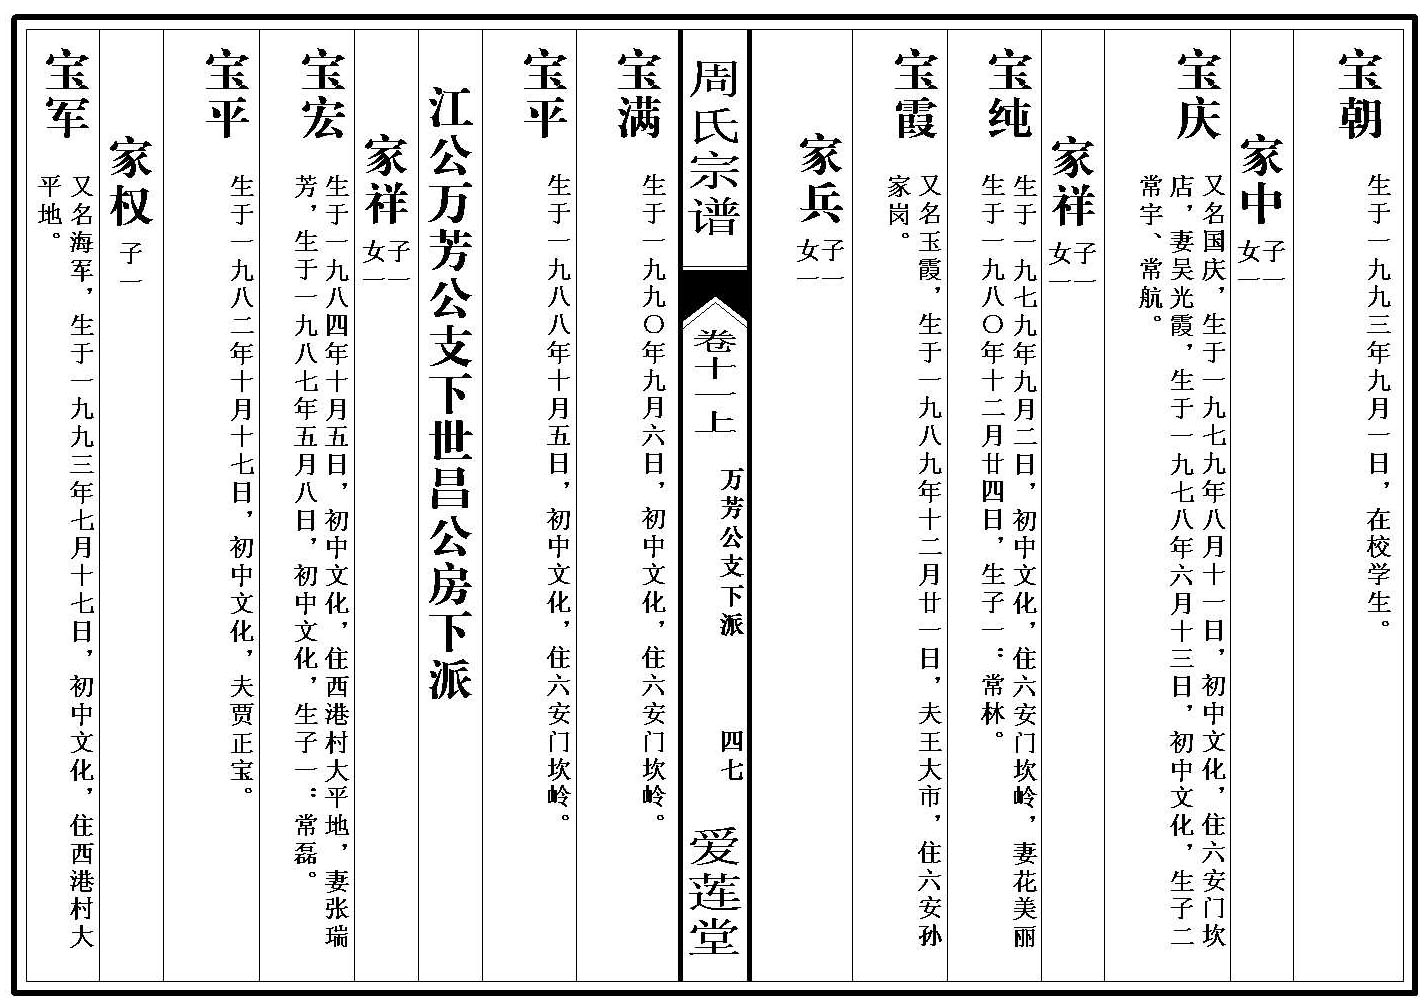 宝朝
生于一九九三年九月一日，在校学生。
家中 子一 女一
宝庆
又名国庆，生于一九七九年八月十一日，初中文化，住六安门坎
店，妻吴光霞，生于一九七八年六月十三日，初中文化，生子二
常宇、常航。
家祥 子一 女一
宝纯
生于一九七九年九月二日，初中文化，住六安门坎岭，妻花美丽
生于一九八〇年十二月廿四日，生子一：常林。
宝霞
又名玉霞，生于一九八九年十二月廿一日，夫王大市，住六安孙
家岗。
家兵 子一 女一
周氏宗谱
卷十一上
万芳公支下派
四七
爱莲堂
宝满
生于一九九〇年九月六日，初中文化，住六安门坎岭。
宝平
生于一九八八年十月五日，初中文化，住六安门坎岭。
江公万芳公支下世昌公房下派
家祥 子一 女一
宝宏
生于一九八四年十月五日，初中文化，住西港村大平地，妻张瑞
芳，生于一九八七年五月八日，初中文化，生子一：常磊。
宝平
生于一九八二年十月十七日，初中文化，夫贾正宝。
家权 子一
宝军
又名海军，生于一九九三年七月十七日，初中文化，住西港村大
平地。